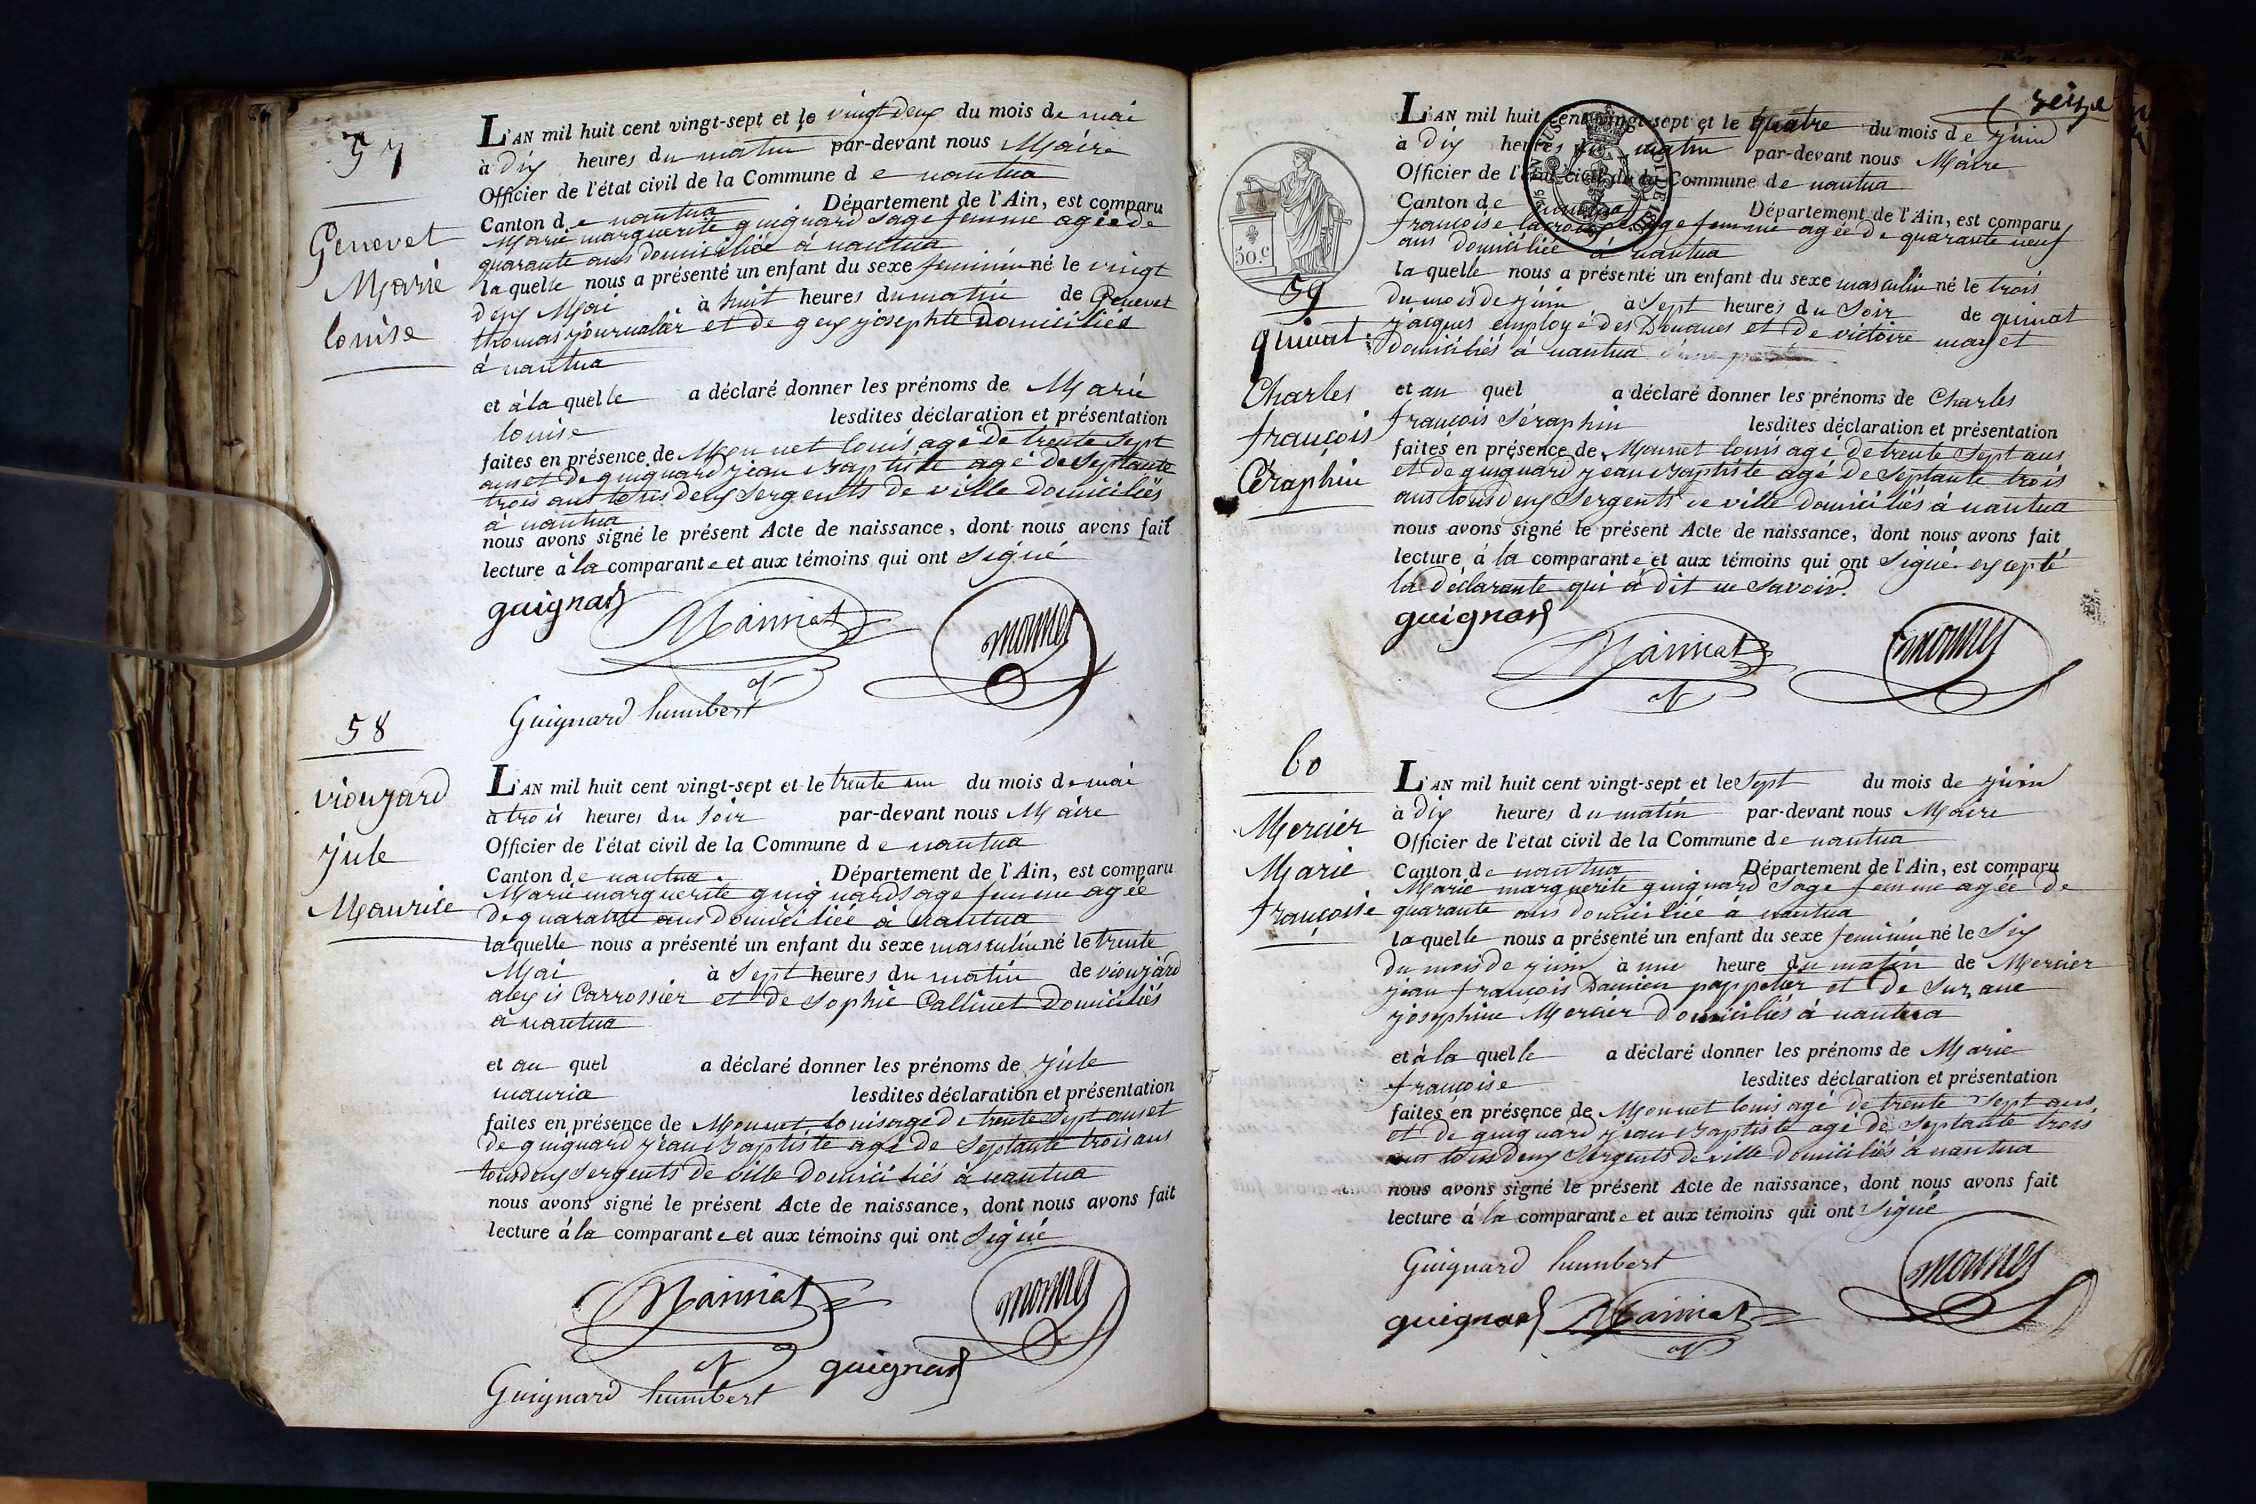 57
Genevet
Marie
louise
L'AN mil huit cent vingt-sept et le vingt deux du mois de mai
à Dix heures du matin par-devant nous Maire
Officier de l'état civil de la Commune de nantua
Canton de nantua Département de l'Ain, est comparu
Marie marguerite guignard Sage femme agée de
quarante ans domiciliée à nantua
laquelle nous a présenté un enfant du sexe feminin né le vingt
deux Mai à huit heures du matin de Genevet
thomas journalier et de gex josephte Domiciliés
à nantua
et à la quelle a déclaré donner les prénoms de Marie
louise lesdites déclaration et présentation
faites en présence de Monnet louis agé de trente Sept
ans et de guignard jean Baptiste agé de Septante
trois ans tous deux Sergents de ville Domiciliés
à nantua
nous avons signé le présent Acte de naissance, dont nous avons fait
lecture à la comparante et aux témoins qui ont Signé
guignard
monnet
Guignard humbert
58
viouzard
jule
Maurice
L'AN mil huit cent vingt-sept et le trente un du mois de mai
à trois heures du soir par-devant nous Maire
Officier de l'état civil de la Commune de nantua
Canton de nantua Département de l'Ain, est comparu
Marie marguerite guignard Sage femme agée
de quarante ans domiciliée à nantua
laquelle nous a présenté un enfant du sexe masculin né le trente
Mai à Sept heures du matin de viouzard
alexis Carrossier et de Sophie Callinet Domiciliés
à nantua
et au quel a déclaré donner les prénoms de jule
mauria lesdites déclaration et présentation
faites en présence de Monnet louis agé de trente Sept ans et
de guignard jean Baptiste agé de Septante trois ans
tous deux Sergents de ville Domiciliés à nantua
nous avons signé le présent Acte de naissance, dont nous avons fait
lecture à la comparante et aux témoins qui ont Signé
monnet
guignard
Guignard humbert
seize
50.c
59
guinat
Charles
françois
Céraphin
L'AN mil huit cent vingt-sept et le quatre du mois de juin
à Dix heures du matin par-devant nous Maire
Officier de l'état civil de la Commune de nantua
Canton de nantua Département de l'Ain, est comparu
françoise sage femme agée de quarante neuf
ans domiciliée à nantua
laquelle nous a présenté un enfant du sexe masculin né le trois
du mois de juin à Sept heures du Soir de guinat
jacques employé des Douanes et de victoire mayet
domiciliés à nantua
et au quel a déclaré donner les prénoms de Charles
françois Séraphin lesdites déclaration et présentation
faites en présence de Monnet louis agé de trente Sept ans
et de guignard jean Baptiste agé de Septante trois
ans tous deux Sergents de ville domiciliés à nantua
nous avons signé le présent Acte de naissance, dont nous avons fait
lecture à la comparante et aux témoins qui ont Signé excepté
la déclarante qui à dit ne Savoir.
guignard
monnet
60
Mercier
Marie
françoise
L'AN mil huit cent vingt-sept et le Sept du mois de juin
à Dix heures du matin par-devant nous Maire
Officier de l'état civil de la Commune de nantua
Canton de nantua Département de l'Ain, est comparu
Marie marguerite guignard Sage femme agée de
quarante ans domiciliée à nantua
laquelle nous a présenté un enfant du sexe feminin né le Six
du mois de juin à une heure du matin de Mercier
jean françois Damien pappetier et de Suzane
josephine Mercier Domiciliés à nantua
et à la quelle a déclaré donner les prénoms de Marie
françoise lesdites déclaration et présentation
faites en présence de Monnet louis agé de trente Sept ans
et de guignard jean Baptiste agé de Septante trois
ans tous deux Sergents de ville domiciliés à nantua
nous avons signé le présent Acte de naissance, dont nous avons fait
lecture à la comparante et aux témoins qui ont Signé
Guignard humbert
monnet
guignard